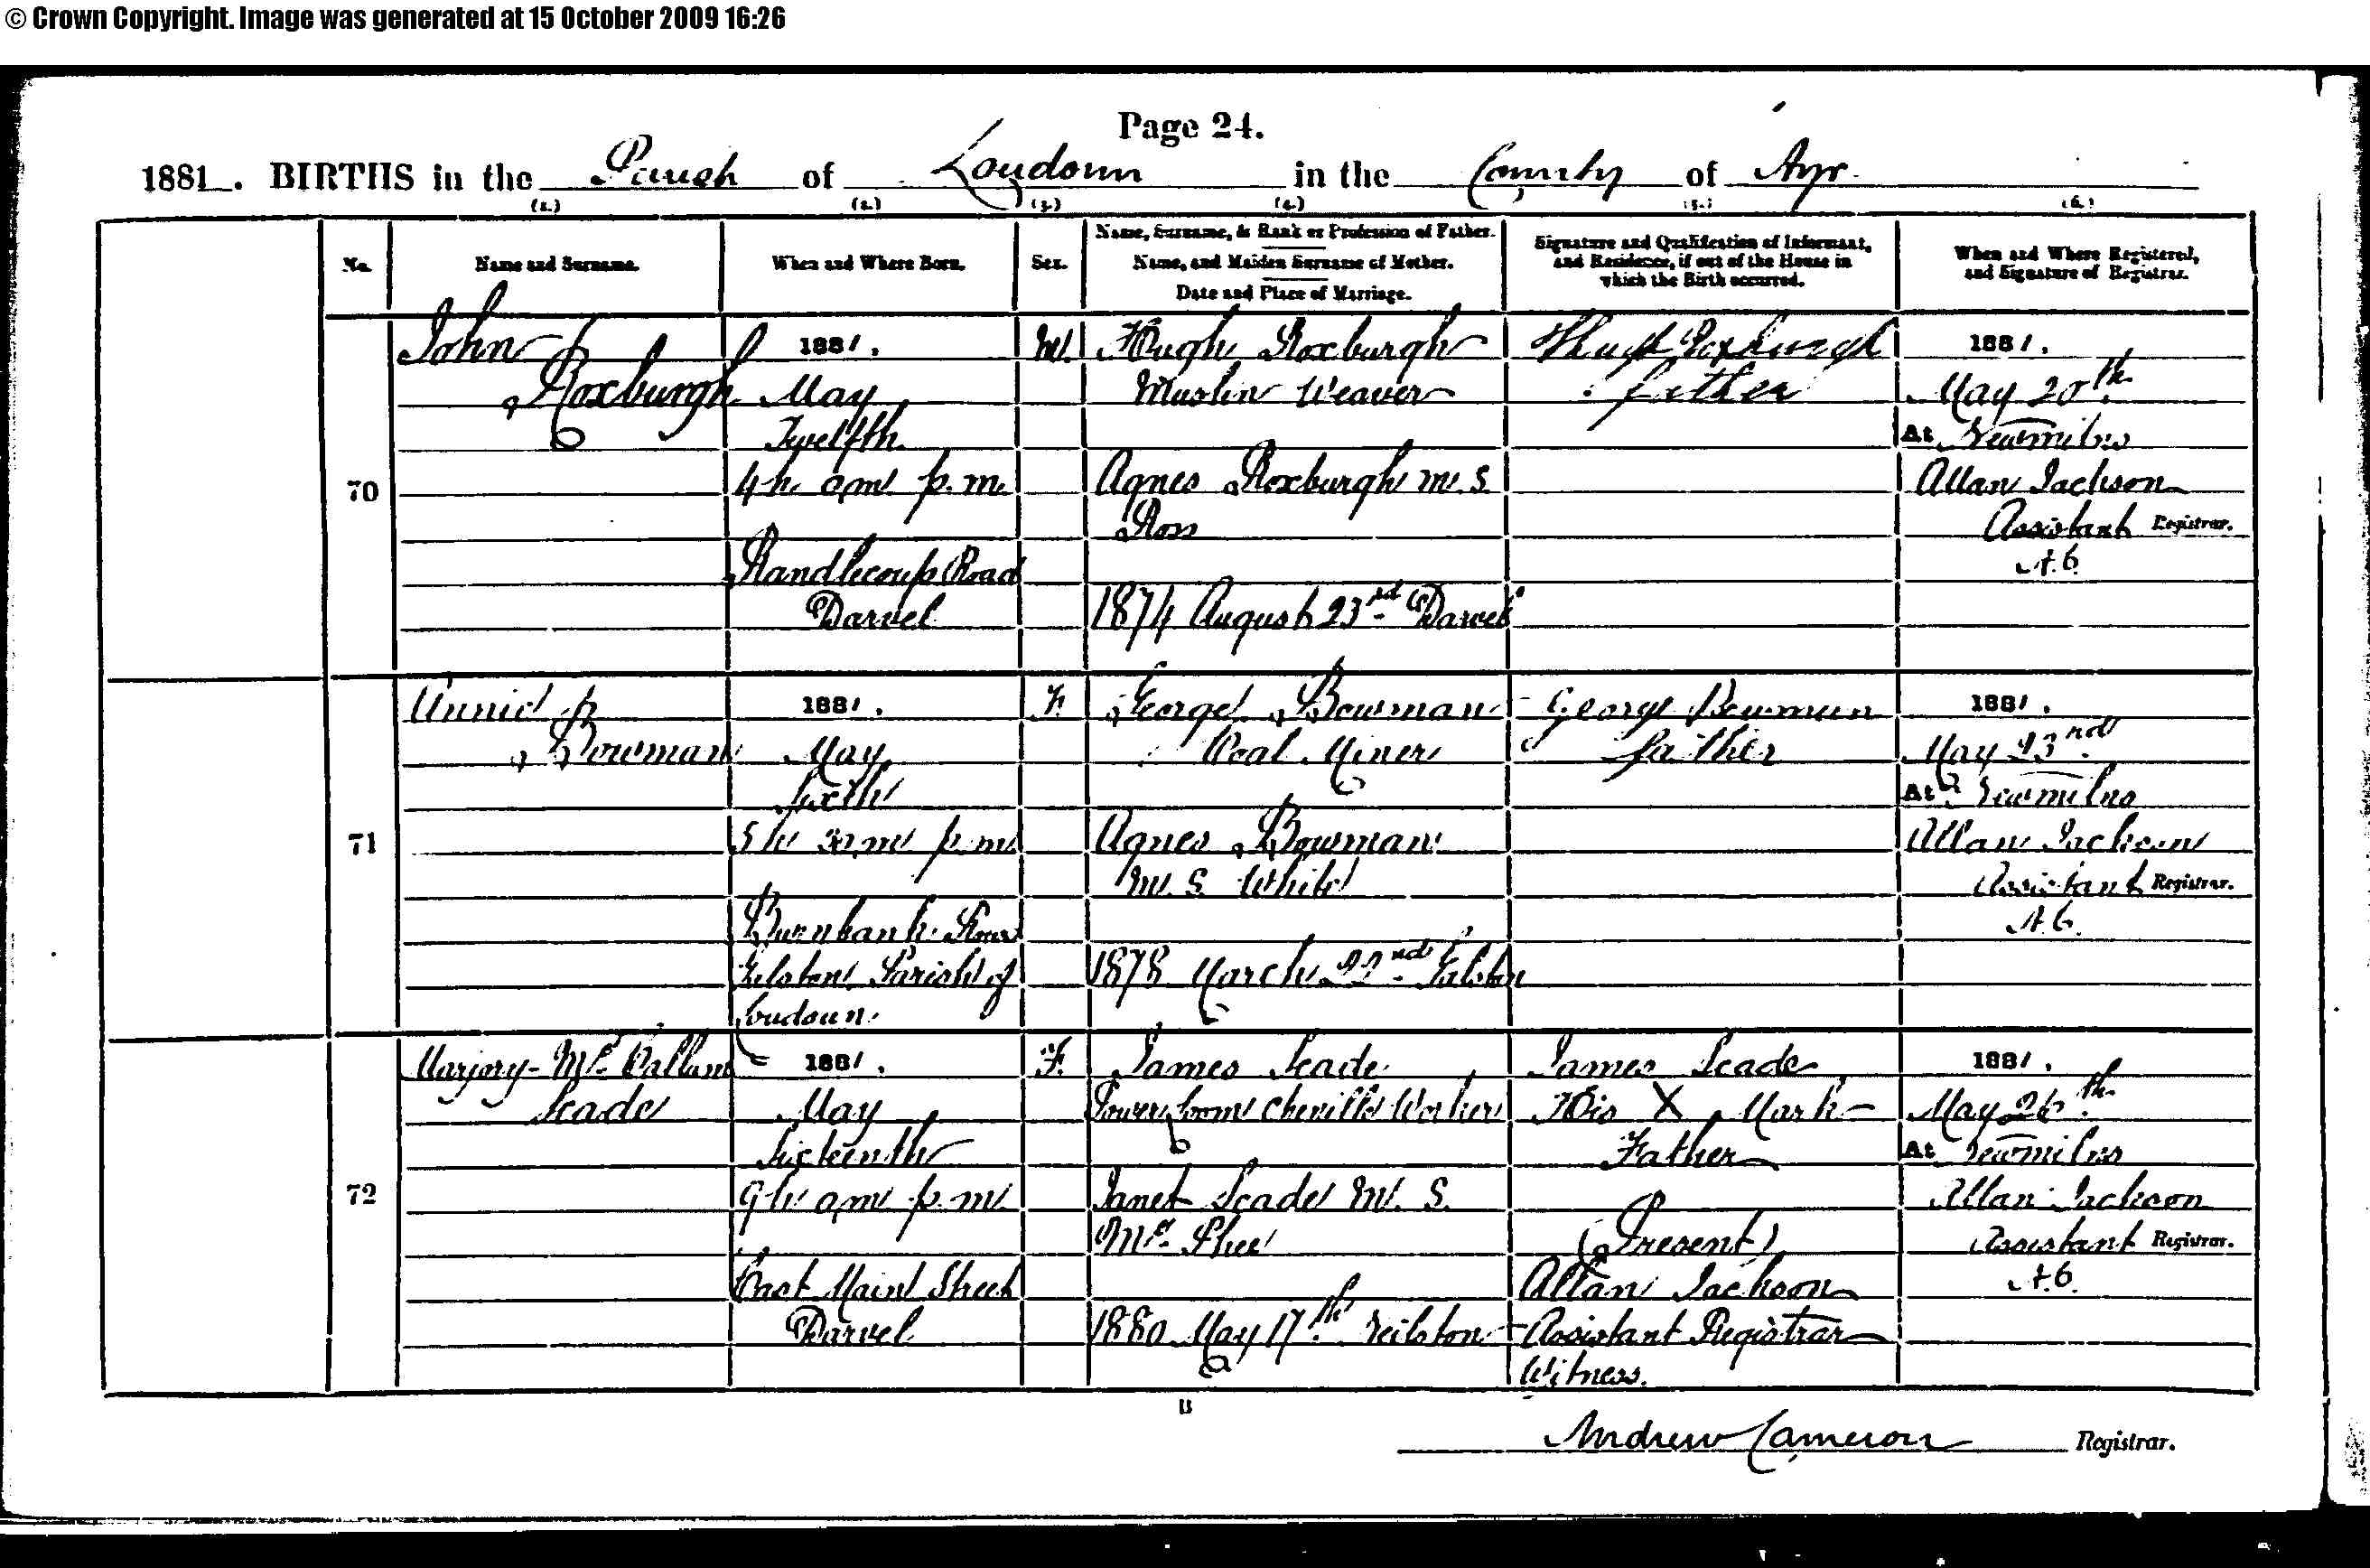 © Crown Copyright. Image was generated at 15 October 2009 16:26
Page 24.
1881. BIRTHS in the Parish of Loudoun in the County of Ayr
(1.) (2.) (3.) (4.) (5.) (6.)
No.
Name and Surname.
When and Where Born.
Sex.
Name, Surname, & Rank or Profession of Father.
Name, and Maiden Surname of Mother.
Date and Place of Marriage.
Signature and Qualification of Informant,
and Residence, if out of the House in
which the Birth occurred.
When and Where Registered,
and Signature of Registrar.
70
John
Roxburgh
1881.
May
Twelfth
4h 0m p.m.
Randlecoup Road
Darvel
M.
Hugh Roxburgh
Muslin Weaver
Agnes Roxburgh m.s.
Ross
1874 August 23rd Darvel
Hugh Roxburgh
father
1881.
May 20th
At Newmilns
Allan Jackson
Assistant Registrar.
A.C.
71
Annie
Bowman
1881.
May
Sixth
5h 30m p.m.
Burnbank Row
Galston Parish of
Loudoun
F.
George Bowman
Coal Miner
Agnes Bowman
M.S. White
1878 March 22nd Galston
George Bowman
father
1881.
May 23rd
At Newmilns
Allan Jackson
Assistant Registrar.
A.C.
72
Marjory Mc Callum
Scade
1881.
May
Sixteenth
9h 0m p.m.
East Main Street
Darvel
F.
James Scade
Powerloom Chenille Worker
Janet Scade M.S.
Mc Phee
1880 May 17th Neilston
James Scade
His X Mark
Father
(Present)
Allan Jackson
Assistant Registrar
Witness.
1881.
May 26th
At Newmilns
Allan Jackson
Assistant Registrar.
A.C.
B
Andrew Cameron Registrar.